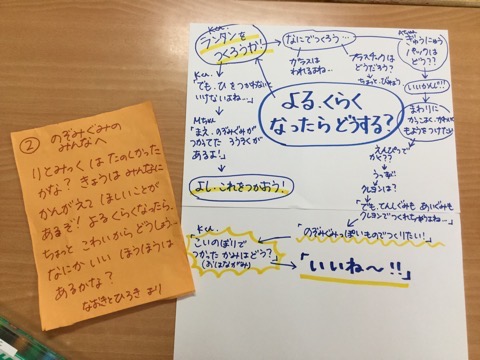 ②
のぞみぐみの
みんなへ
りとみっく はたのしかった
かな？ きょうは みんなに
かんがえて ほしいことが
あるぞ！ よるくらくなったら、
ちょっと こわいから どうしよう…
なにか いい ほうほうは
あるかな？
なおきとひろき より
Kくん.
ランタンを
つくろうか！
なにでつくろう…
ガラスは
われるよね…
プラスチックは
どうだろう？
ちょっと、びみょう
ぎゅうにゅう
パックは
どう？？
いいかんじ!!
まわりに
もようをつけたら！
えんぴつで
かく？？
うっすい
クレヨンは？
「でも、てんしぐみも あいぐみも
クレヨンでつくれちゃうよね…」
「のぞみぐみっぽいものでつくりたい！」
Kくん.
「でも、ひをつかわないと
いけないよね…」
Mちゃん
「まえ、のぞみぐみが
つかってた ろうそくが
あるよ！」
よし、これをつかおう！
よる、くらく
なったらどうする？
Kくん.
「こいのぼりで
つかった かみはどう？」
(おはながみ)
「いいね〜!!」